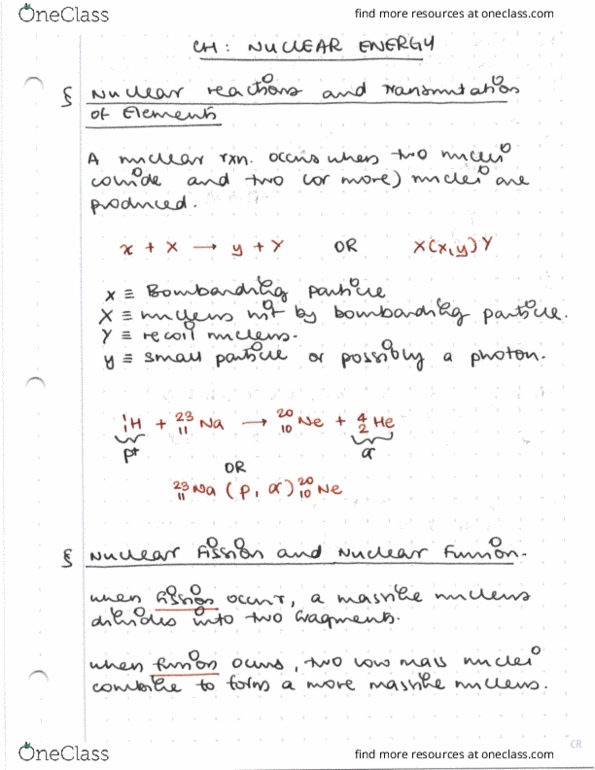 OneClass
find more resources at oneclass.com
CH: NUCLEAR ENERGY
§ Nuclear reactions and Transmutation
of Elements
A nuclear rxn. occurs when two nuclei
collide and two (or more) nuclei are
produced.
x + X → y + Y OR X(x,y)Y
x ≡ Bombarding particle
X ≡ nucleus hit by bombarding particle.
Y ≡ recoil nucleus.
y ≡ small particle or possibly a photon.
¹₁H + ²³₁₁Na → ²⁰₁₀Ne + ⁴₂He
p+ α
OR
²³₁₁Na (p, α) ²⁰₁₀Ne
§ Nuclear Fission and Nuclear Fusion.
when fission occurs, a massive nucleus
divides into two fragments.
when fusion occurs, two low mass nuclei
combine to form a more massive nucleus.
CR
OneClass
find more resources at oneclass.com